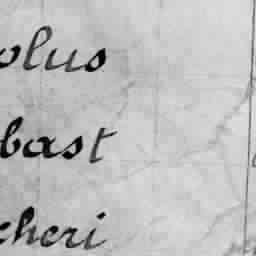 olus
bast
cheri